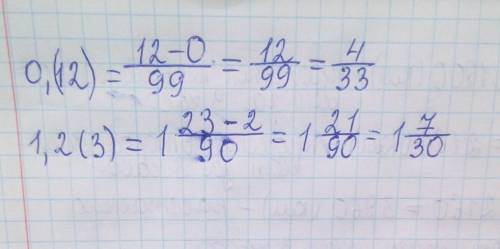 0,(12) = 12-0/99 = 12/99 = 4/33
1,2(3) = 1 23-2/90 = 1 21/90 = 1 7/30